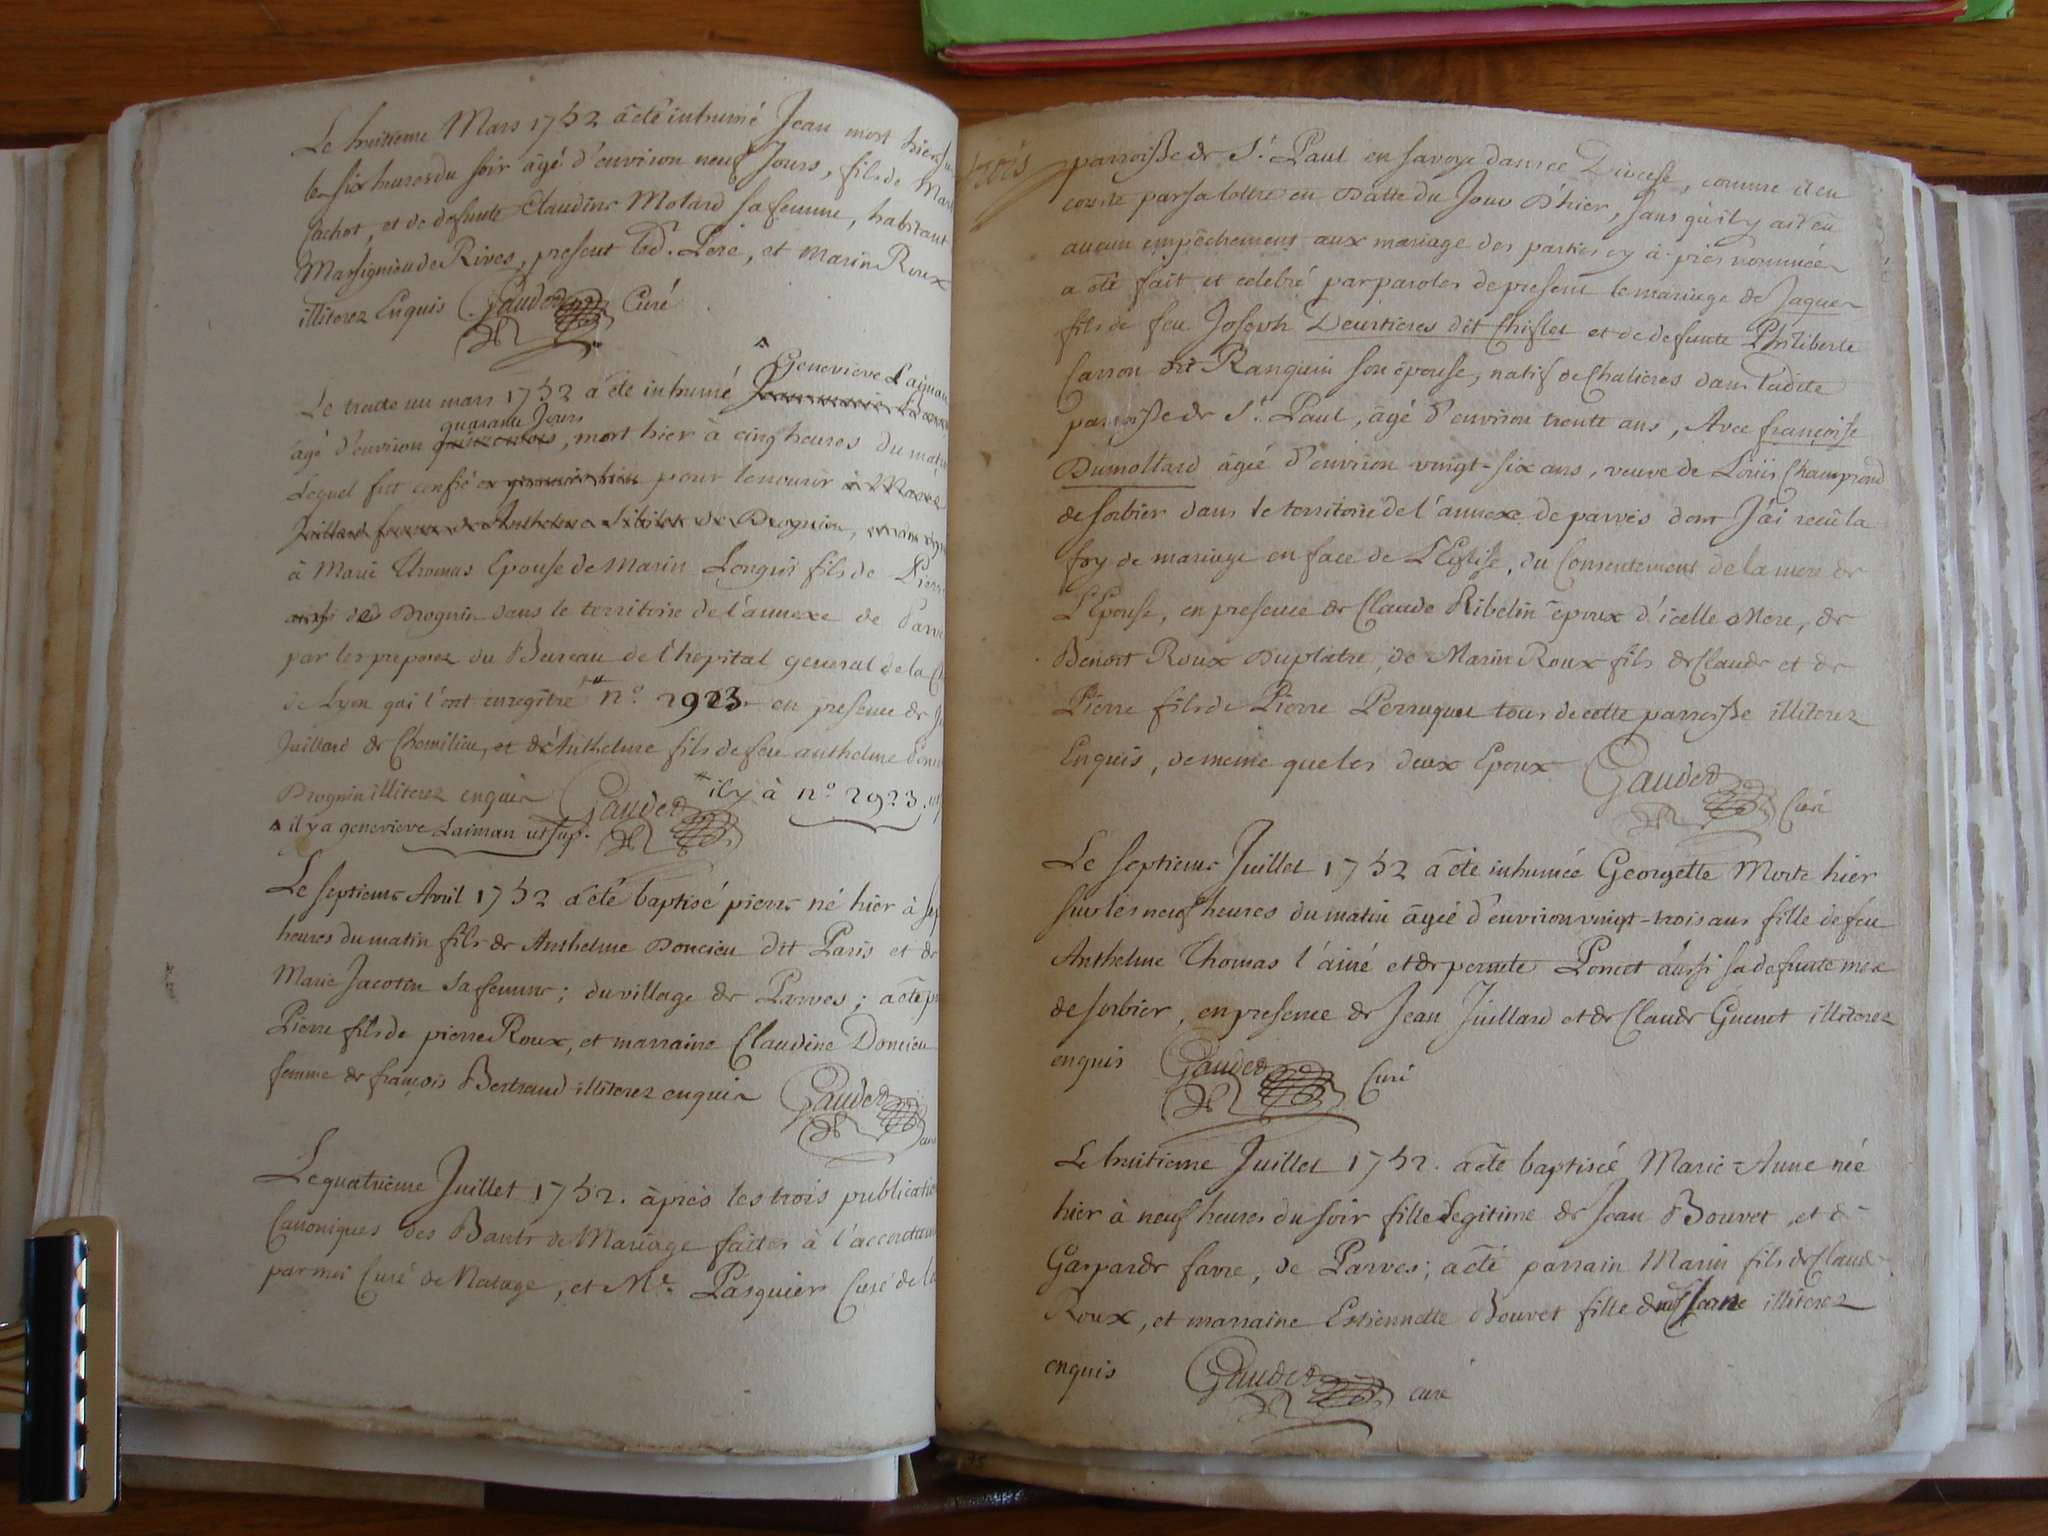 Le huitieme Mars 1752 a èté inhumé Jean mort hier sur
les six heures du soir agé d'environ neuf Jours, fils de Mar
Cachot, et de defunte Claudine Motard sa femme, habitant
Marsignieu de Rives, present led. Pere, et Marin Roux
illiterez Enquis Gaudet Curé
^ Genevieve Laiman
Le trente un mars 1752 a èté inhumé
quarante Jours
agé d'environ quinze mois, mort hier à cinq heures du matin
Lequel fut confié pour le nourir à Marie
Juillard femme de Anthelme Sibilet de Prognin,
à Marie Thomas Epouse de Marin Longin fils de Pierre
aussi de Prognin dans le territoire de l'annexe de Parve
par les preposez du Bureau de l'hopital general de la
de Lyon qui l'ont enregitré n.o 2923 en presence de
Juillard de Chemilieu, et de Anthelme fils de feu anthelme
Prognin illiterez enquis Gaudet * il y à n.o 2923.
^ il y a genevieve Laiman ut sup.
Le septieme Avril 1752 a èté baptisé pierre né hier à sep
heures du matin fils de Anthelme Doncieu dit Paris et de
Marie Jacotin sa femme; du village de Parves; a èté p
Pierre fils de pierre Roux, et marraine Claudine Doncieu
femme de françois Bertrand illiterez enquis Gaudet
curé
Le quatrieme Juillet 1752. àprès les trois publicatio
Canoniques des Bants de Mariage faites à l'accoutum
par moi Curé de Natage, et M.re Pasquier Curé de la
parroisse de S.t Paul en savoye dans ce Diocese, comme il en
conste par sa lettre en Datte du Jour D'hier, sans qu'il y ait eu
aucun empêchement aux mariage des parties cy à-près nommées
a èté fait et celebré par paroles de present le mariage de Jaques
fils de feu Joseph Deurtieres dit Chiflet et de defunte Philiberte
Carron dit Ranguin son èpouse, natif de Chalieres dans ladite
parroisse de S.t Paul, àgé d'environ trente ans, Avec françoise
Dumollard àgée d'environ vingt-six ans, veuve de Loüis Champrond
de sorbier dans le territoire de l'annexe de parves dont J'ai receü la
foy de mariage en face de L'Eglise, du Consentement de la mere de
L'Epouse, en presence de Claude Ribelin èpoux d'icelle Mere, de
Benoit Roux Duplatre, de Marin Roux fils de Claude et de
Pierre fils de Pierre Perruquet tous de cette parroisse illiterez
Enquis, de meme que les deux Epoux Gaudet
Curé
Le septieme Juillet 1752 a èté inhumée Georgette Morte hier
sur les neuf heures du matin àgée d'environ vingt-trois ans fille de feu
Anthelme Thomas l'ainé et de pernete Poncet aussi sa defunte mere
de sorbier, en presence de Jean Juillard et de Claude Guenet illiterez
enquis Gaudet Curé
Le huitieme Juillet 1752. a èté baptisée Marie-Anne née
hier à neuf heures du soir fille Legitime de Jean Bouvet, et de
Gasparde favre, de Parves; a èté parrain Marin fils de Claude
Roux, et marraine Estiennette Bouvet fille illiterez
enquis Gaudet curé